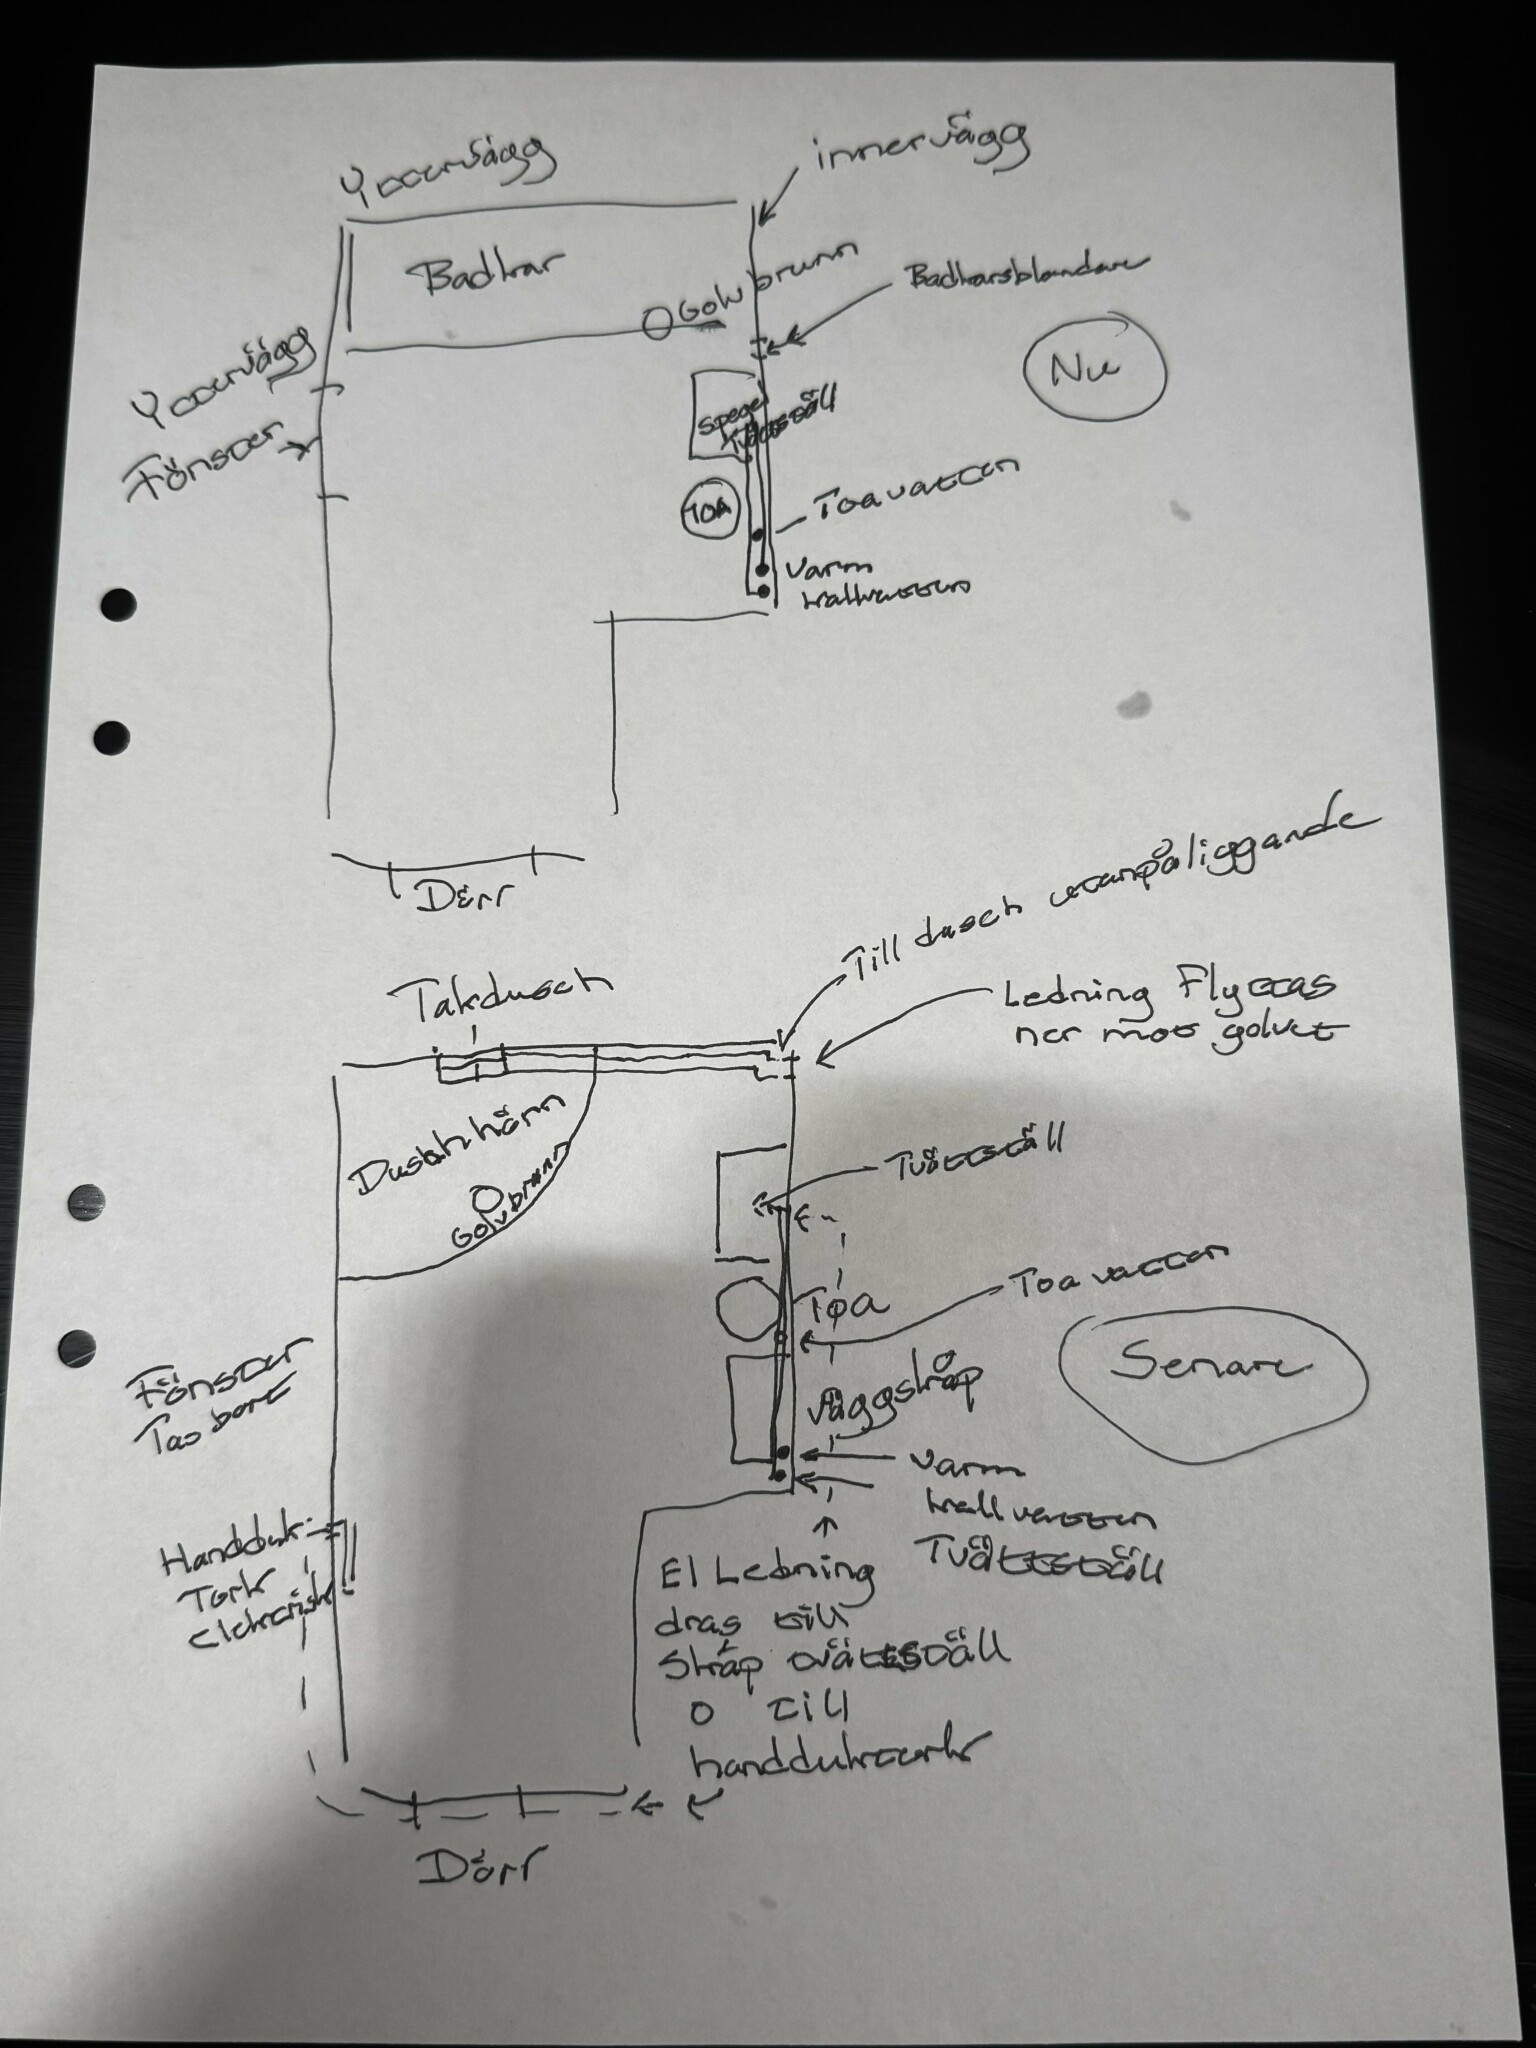 Yttervägg
innervägg
Badkar
Golvbrunn
Badkarsblandare
Yttervägg
Nu
Spegel
Tvättställ
Fönster
TOA
Toavatten
Varm
kallvatten
Dörr
Till dusch utanpåliggande
Takdusch
Ledning Flyttas
ner mot golvet
Duschhörn
Golvbrunn
Tvättställ
Toa
Toavatten
Fönster
Tas bort
Senare
Väggskåp
Varm
kallvatten
Tvättställ
Handduk
Tork
elektrisk
El Ledning
dras till
Skåp tvättställ
o till
handduktork
Dörr